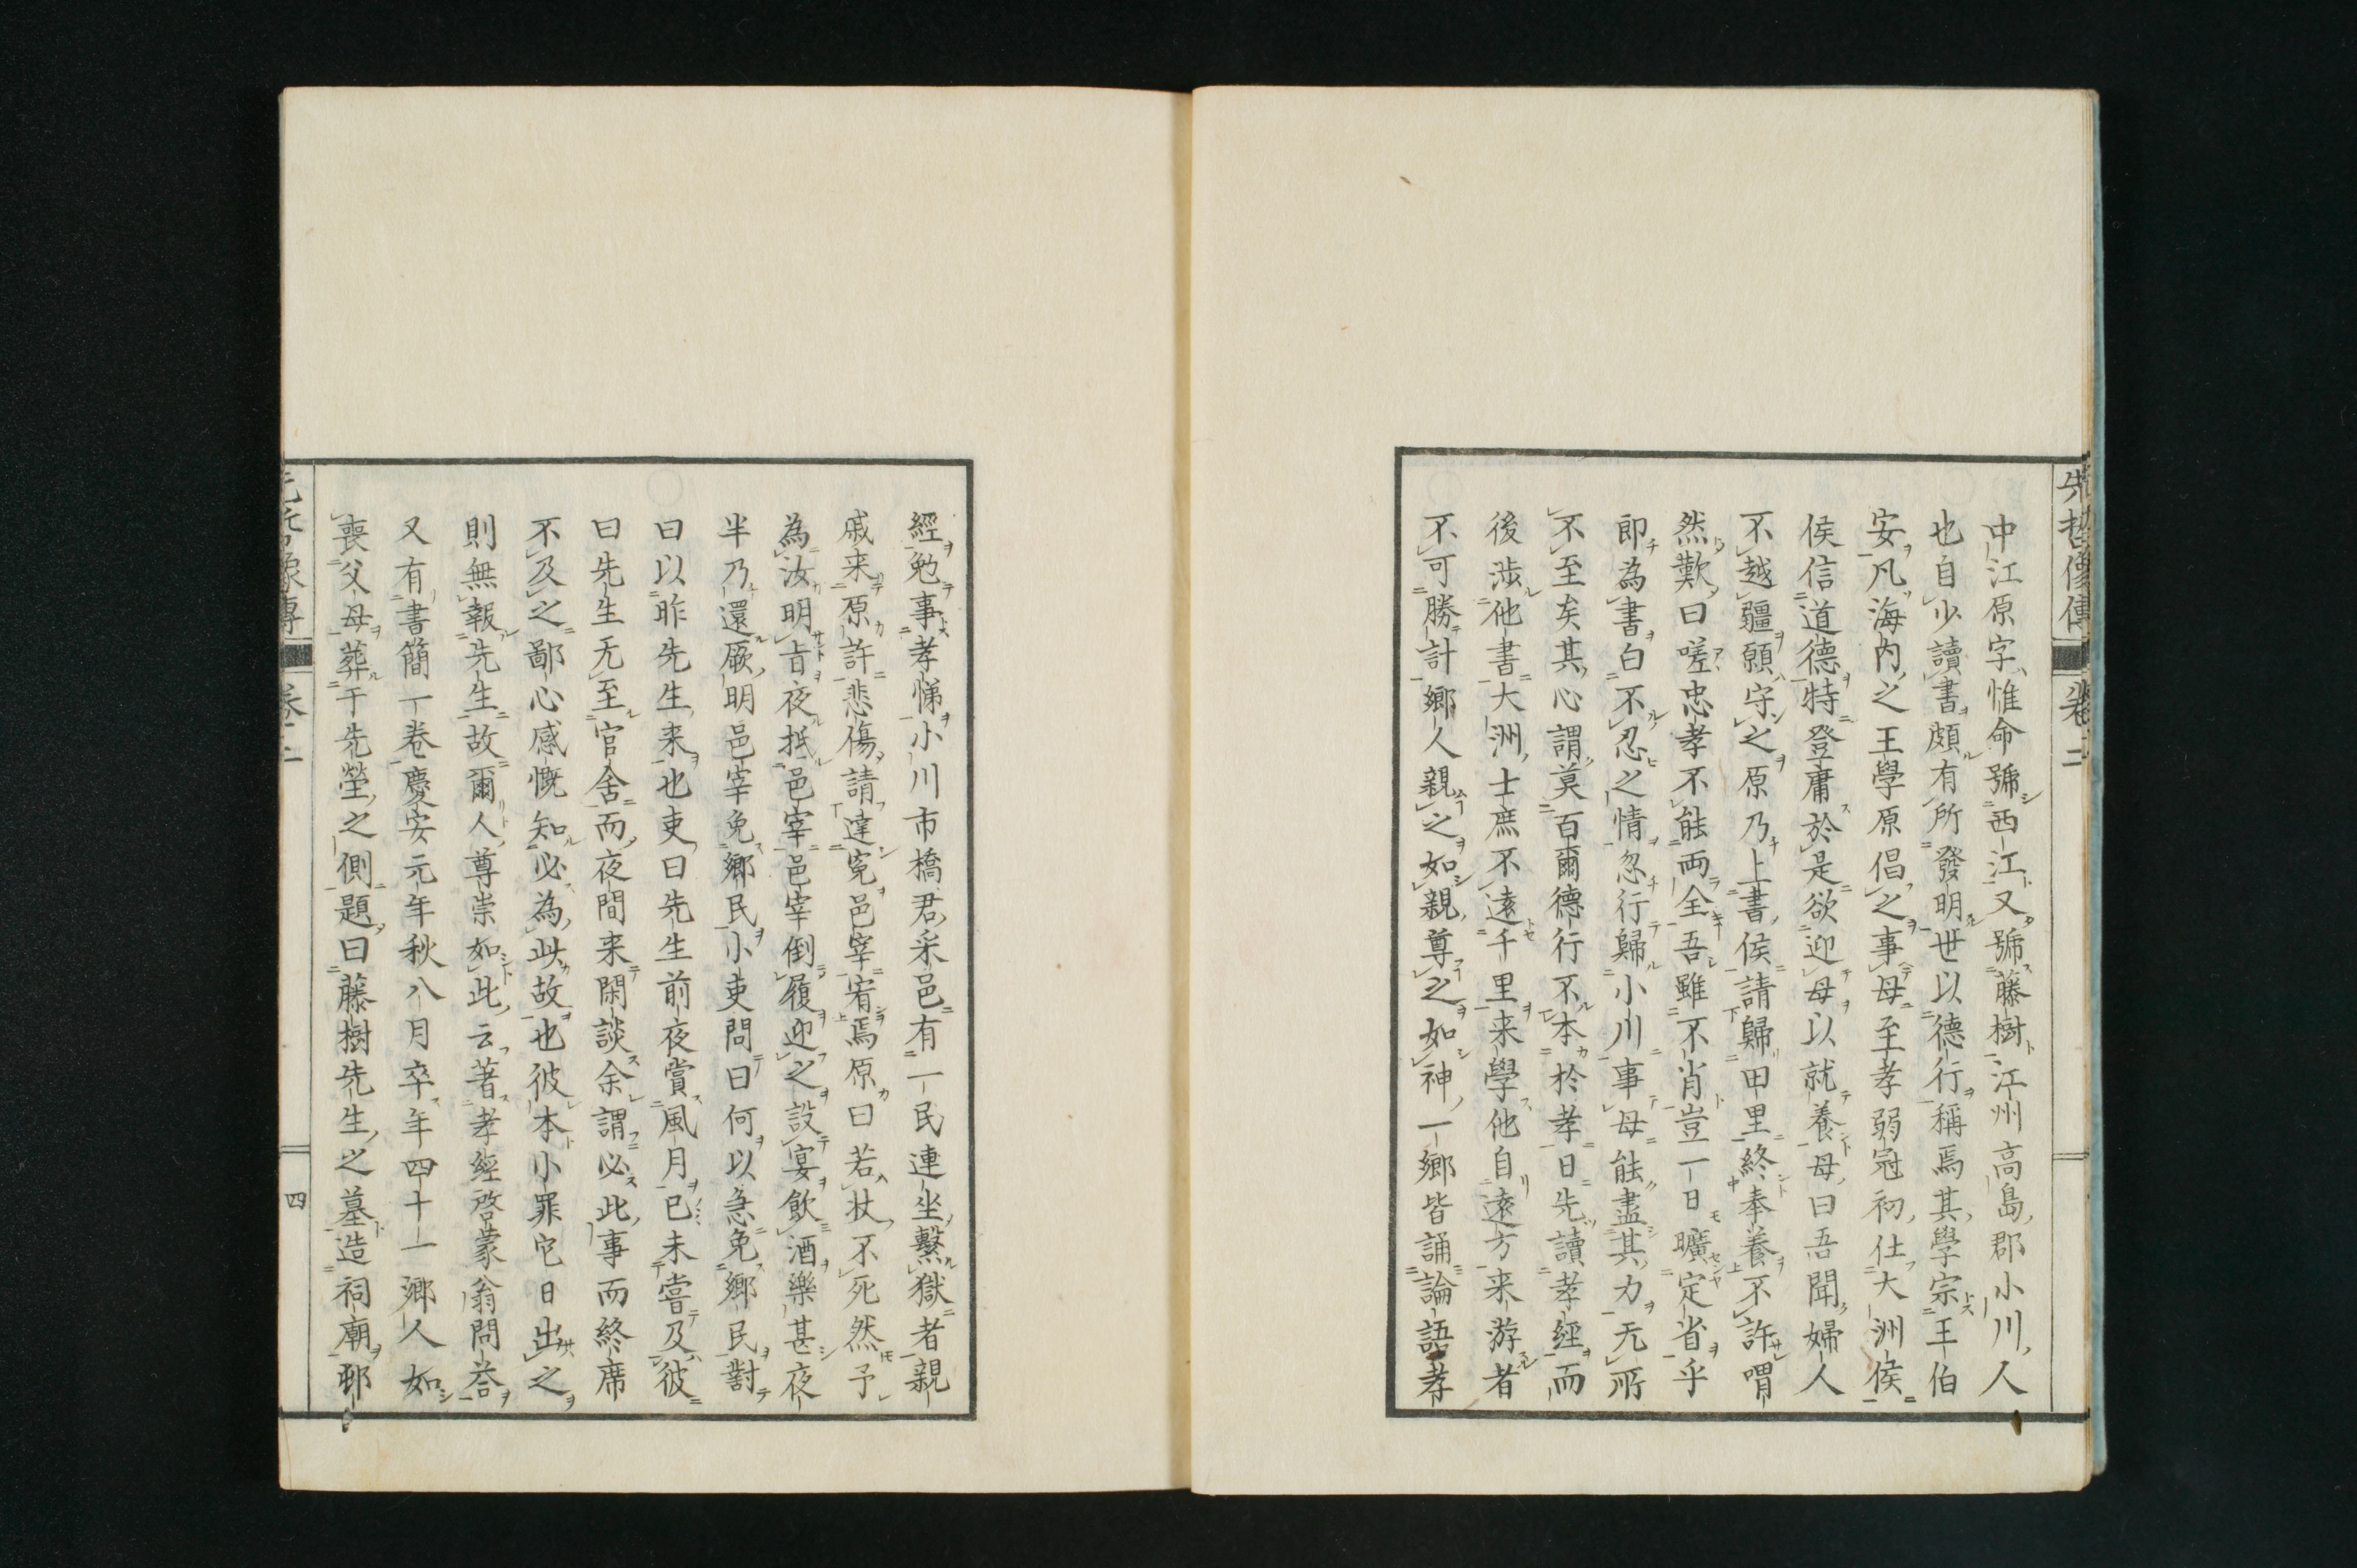 先哲像傳 卷二
中江原字惟命號西江又號藤樹江州高島郡小川人
也自少讀書頗有所發明世以德行稱焉其學宗王伯
安凡海內之王學原倡之事母至孝弱冠初仕大洲侯
侯信道德特登庸於是欲迎母以就養母曰吾聞婦人
不越疆願守之原乃上書侯請歸田里終奉養不許喟
然歎曰嗟忠孝不能両全吾雖不肖豈一日曠定省乎
即為書白不忍之情忽行歸小川事母能盡其力无所
不至矣其心謂莫百爾德行不本於孝日先讀孝經而
後渉他書大洲士庶不遠千里来學他自遠方来游者
不可勝計鄉人親之如親尊之如神一鄉皆誦論語孝
經勉事孝悌小川市橋君采邑有一民連坐繫獄者親
戚来原許悲傷請達冤邑宰宥焉原曰若杖不死然予
為汝明旹夜抵邑宰邑宰倒履迎之設宴飲酒樂甚夜
半乃還厥明邑宰免鄉民小吏問曰何以急免鄉民對
曰以昨先生来也吏曰先生前夜賞風月已未嘗及彼
曰先生无至官舍而夜間来閑談余謂必此事而終席
不及之鄙心感慨知必為此故也彼本小罪它日出之
則無報先生故爾人尊崇如此云著孝經啓蒙翁問荅
又有書簡一卷慶安元年秋八月卒年四十一鄉人如
喪父母葬于先塋之側題曰藤樹先生之墓造祠廟邨
先哲像傳 卷二 四